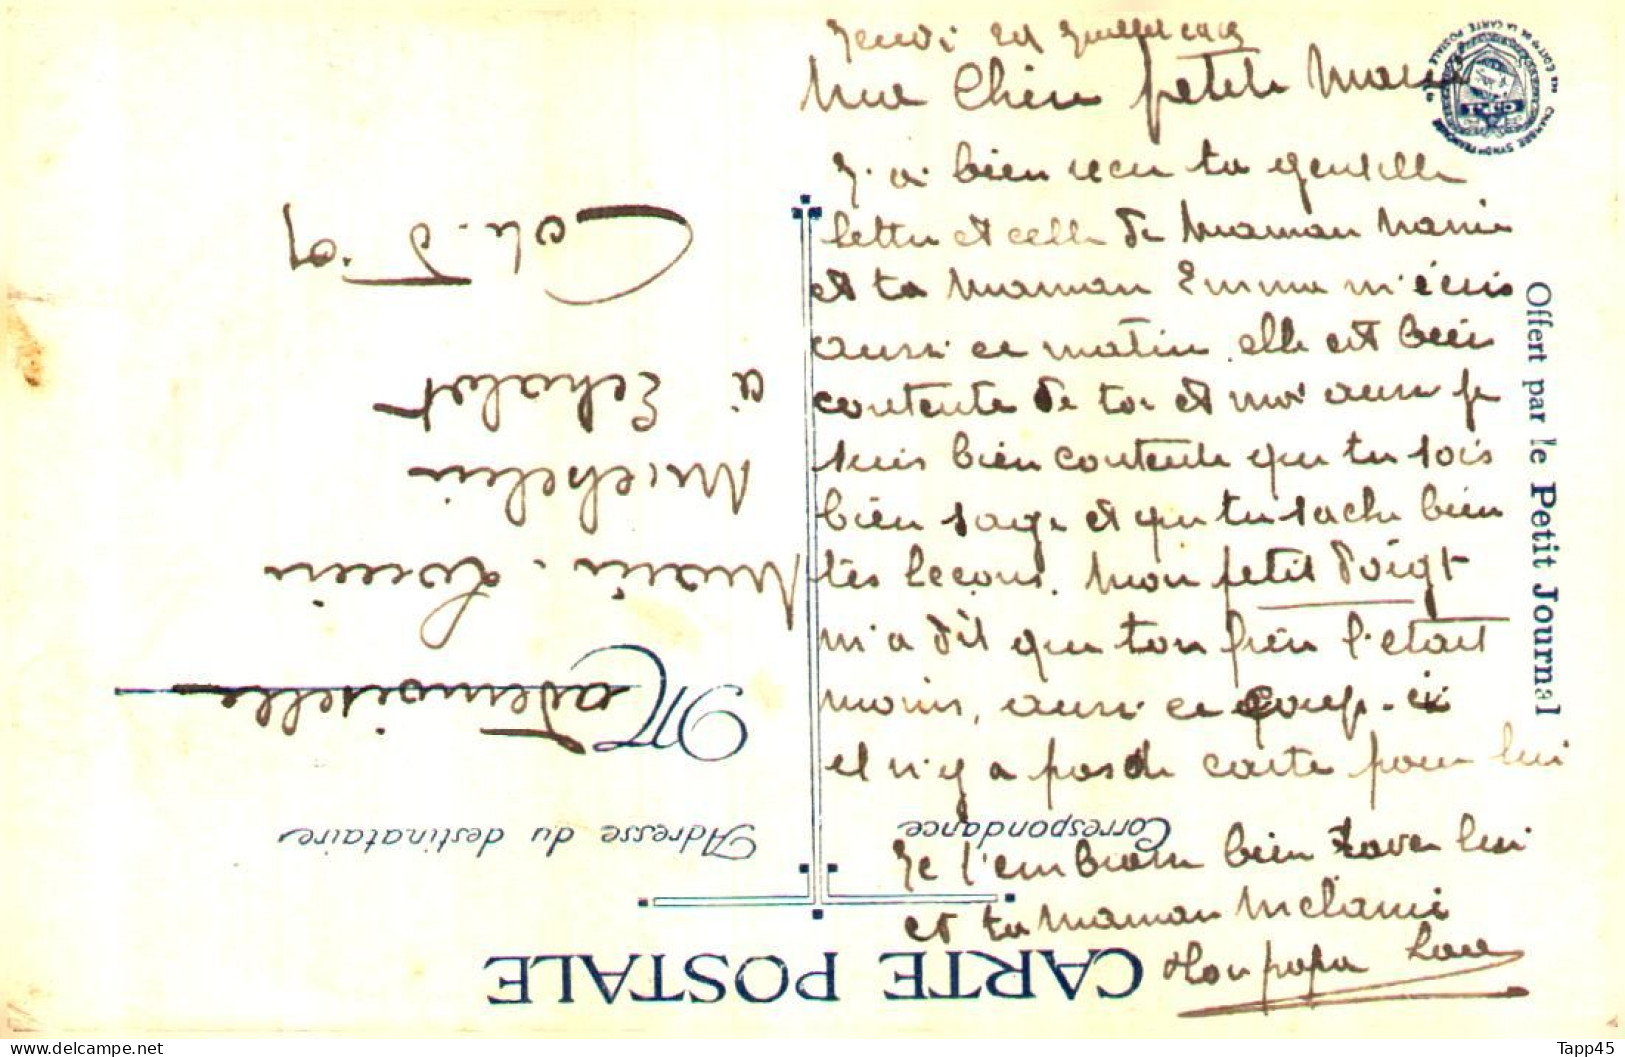 Ma Chère petite
J'ai bien reçu ta gentille
lettre et celle de Maman Marie
et ta Maman Emma m'écris
aussi ce matin. elle est bien
contente de toi et moi aussi je
suis bien contente que tu sois
bien sage et que tu sache bien
tes leçons. Mon petit doigt
m'a dit que ton frère l'etait
moins, aussi ce coup-ci
il n'y a pas de carte pour lui
Je t'embrasse bien avec lui
et ta maman Melanie
Ton papa
Offert par le Petit Journal
CARTE POSTALE
Correspondance
Adresse du destinataire
Mademoiselle
Marie-Louise
Michelin
à Echalot
Cote. d'or
https://www.delcampe.net
Tapp45